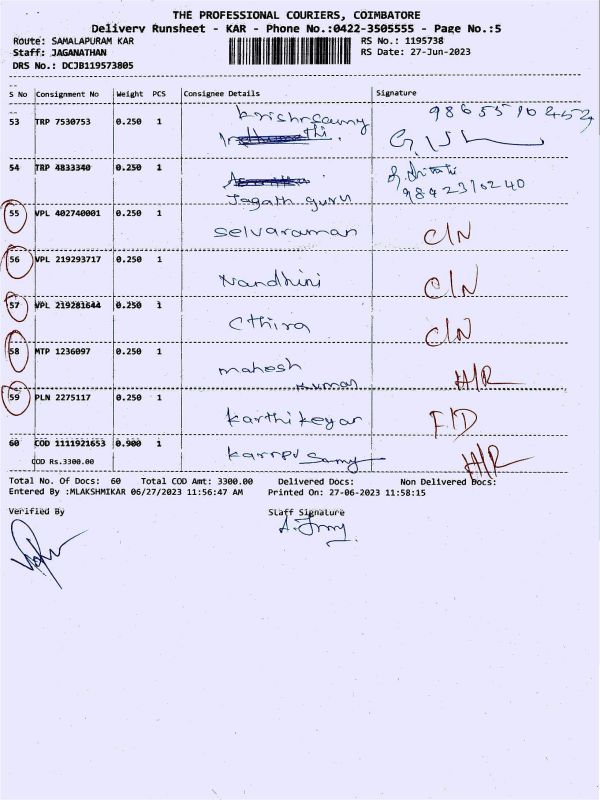 THE PROFESSIONAL COURIERS, COIMBATORE
Delivery Runsheet - KAR - Phone No.:0422-3505555 - Page No.:5
Route: SAMALAPURAM KAR RS No.: 1195738
Staff: JAGANATHAN RS Date: 27-Jun-2023
DRS No.: DCJB119573805
S No Consignment No Weight PCS Consignee Details Signature
53 TRP 7530753 0.250 1 krishnsamy
54 TRP 4833340 0.250 1
Jagath guru 9842310240
55 VPL 402740001 0.250 1 selvaraman C/N
56 VPL 219293717 0.250 1 Nandhini C/N
57 VPL 219281644 0.250 1 Cthira C/N
58 MTP 1236097 0.250 1 mahesh kumar H/R
59 PLN 2275117 0.250 1 karthikeyan F/D
60 COD 1111921653 0.900 1 samy H/R
COD Rs.3300.00
Total No. Of Docs: 60 Total COD Amt: 3300.00 Delivered Docs: Non Delivered Docs:
Entered By :MLAKSHMIKAR 06/27/2023 11:56:47 AM Printed On: 27-06-2023 11:58:15
Verified By Staff Signature